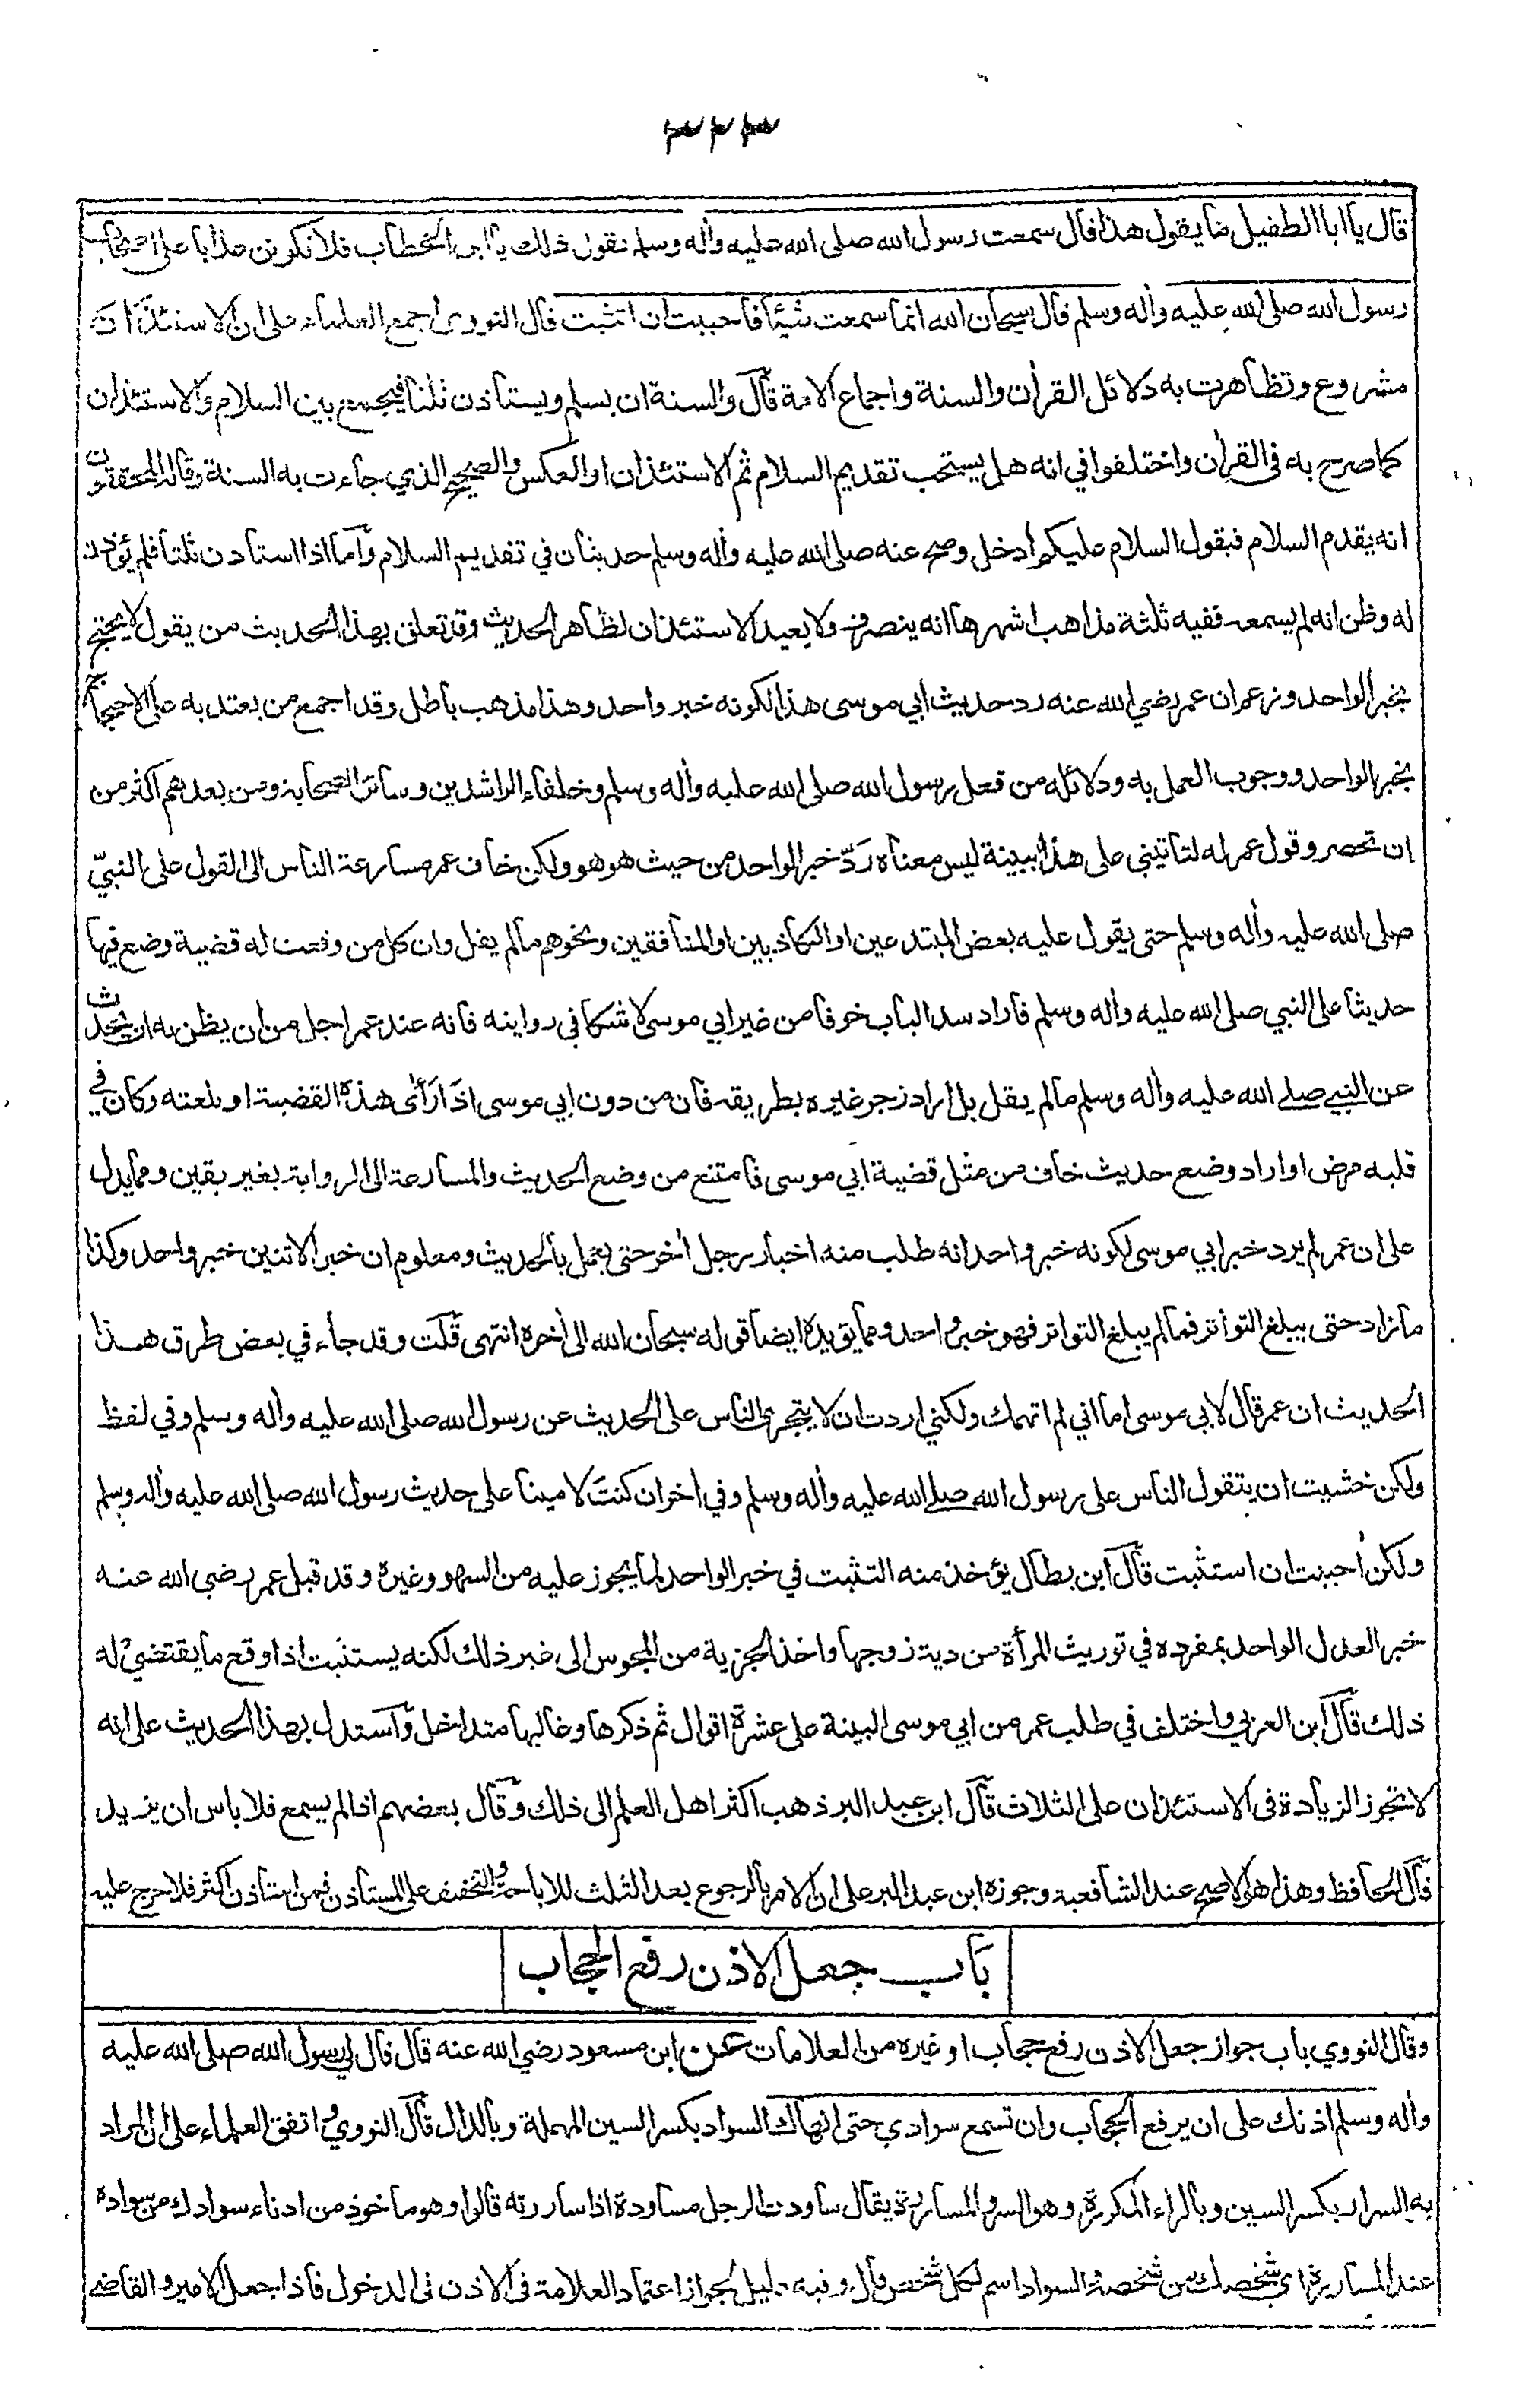 ٣٢٣
قال يا أبا الطفيل ما يقول هذا قال سمعت رسول الله صلى الله عليه وأله وسلم يقول ذلك يا ابن الخطاب فلا تكونن عذابا على اصحاب
رسول الله صلى الله عليه وأله وسلم قال سبحان الله انما سمعت شيئا فاحببت ان اتثبت قال النووي اجمع العلماء على ان الاستئذان
مشروع وتظاهرت به دلائل القرأن والسنة واجماع الامة قال والسنة ان يسلم ويستاذن ثلثا فيجمع بين السلام والاستئذان
كما صرح به في القرأن واختلفوا في انه هل يستحب تقديم السلام ثم الاستئذان او العكس والصحيح الذي جاءت به السنة وقاله المحققون
انه يقدم السلام فيقول السلام عليكم أدخل وصح عنه صلى الله عليه وأله وسلم حديثان في تقديم السلام وأما اذا استاذن ثلثا فلم يؤذن
له وظن انه لم يسمعه ففيه ثلثة مذاهب اشهرها انه ينصرف ولا يعيد الاستئذان لظاهر الحديث وقد تعلق بهذا الحديث من يقول لا يحتج
بخبر الواحد وزعم ان عمر رضي الله عنه رد حديث ابي موسى هذا لكونه خبر واحد وهذا مذهب باطل وقد اجمع من يعتد به على الاحتجاج
بخبر الواحد ووجوب العمل به ودلائله من فعل رسول الله صلى الله عليه وأله وسلم وخلفاء الراشدين وسائر الصحابة ومن بعدهم اكثر من
ان تحصر وقول عمر له لتاتيني على هذا ببينة ليس معناه ردّ خبر الواحد من حيث هو هو ولكن خاف عمر مسارعة الناس الى القول على النبيّ
صلى الله عليه وأله وسلم حتى يقول عليه بعض المبتدعين او الكاذبين او المنافقين ونحوهم ما لم يقل وان كل من وقعت له قضية وضع فيها
حديثا على النبي صلى الله عليه وأله وسلم فاراد سد الباب خوفا من غير ابي موسى لا شكا في روايته فانه عند عمر اجل من ان يظن به ان يحدث
عن النبي صلى الله عليه وأله وسلم ما لم يقل بل اراد زجر غيره بطريقه فان من دون ابي موسى اذا رأى هذه القضية او بلغته وكان في
قلبه مرض او اراد وضع حديث خاف من مثل قضية ابي موسى فامتنع من وضع الحديث والمسارعة الى الرواية بغير يقين ومما يدل
على ان عمر لم يرد خبر ابي موسى لكونه خبر واحد انه طلب منه اخبار رجل أخر حتى يعمل بالحديث ومعلوم ان خبر الاثنين خبر واحد وكذا
ما زاد حتى يبلغ التواتر فما لم يبلغ التواتر فهو خبر واحد ومما يؤيده ايضا قوله سبحان الله الى أخره انتهى قلت وقد جاء في بعض طرق هذا
الحديث ان عمر قال لابي موسى اما اني لم اتهمك ولكني اردت ان لا يتجرى الناس على الحديث عن رسول الله صلى الله عليه وأله وسلم وفي لفظ
ولكن خشيت ان يتقول الناس على رسول الله صلى الله عليه وأله وسلم وفي أخر ان كنت لامينا على حديث رسول الله صلى الله عليه وأله وسلم
ولكن أحببت ان استثبت قال ابن بطال يؤخذ منه التثبت في خبر الواحد لما يجوز عليه من السهو وغيره وقد قبل عمر رضي الله عنه
خبر العدل الواحد بمفرده في توريث المرأة من دية زوجها واخذ الجزية من المجوس الى غير ذلك لكنه يستثبت اذا وقع ما يقتضي له
ذلك قال ابن العربي واختلف في طلب عمر من ابي موسى البينة على عشرة اقوال ثم ذكرها وغالبها متداخل وأستدل بهذا الحديث على انه
لا تجوز الزيادة في الاستئذان على الثلاث قال ابن عبد البر ذهب اكثر اهل العلم الى ذلك وقال بعضهم اذا لم يسمع فلا باس ان يزيد
قال الحافظ وهذا هو الاصح عند الشافعية وجوزه ابن عبد البر على ان الامر بالرجوع بعد الثلث للاباحة والتخفيف على المستاذن فمن استاذن اكثر فلا حرج عليه
باب جعل الاذن رفع الحجاب
وقال النووي باب جواز جعل الاذن رفع حجاب او غيره من العلامات عن ابن مسعود رضي الله عنه قال قال لي رسول الله صلى الله عليه
وأله وسلم اذنك على ان يرفع الحجاب وان تسمع سوادي حتى انهاك السواد بكسر السين المهملة وبالدال قال النووي واتفق العلماء على ان المراد
به السرار بكسر السين وبالراء المكررة وهو السر والمساررة يقال ساودت الرجل مساودة اذا ساررته قالوا وهو ماخوذ من ادناء سوادك من سواده
عند المساررة اي شخصك من شخصه والسواد اسم لكل شخص قال وفيه دليل لجواز اعتماد العلامة في الاذن في الدخول فاذا جعل الامير والقاضي